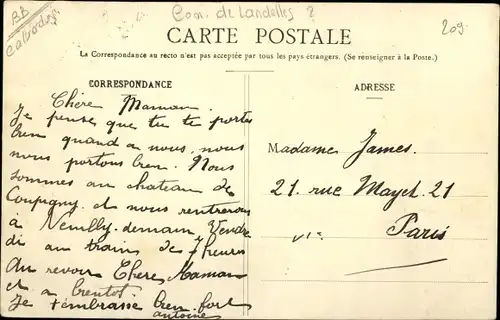 BB
Calvados
Com. de Landelles ?
209
CARTE POSTALE
La Correspondance au recto n'est pas acceptée par tous les pays étrangers. (Se renseigner à la Poste.)
CORRESPONDANCE
ADRESSE
Chère Maman.
Je pense que tu te portes
bien quand a nous, nous
nous portons bien. Nous
sommes au chateau de
Coupigny. et nous rentrerons
à Neuilly. demain, Vendre
di au train de 7 heures
Au revoir Chère Maman
et a bientot.
Je t'embrasse bien fort
antoine
Madame James.
21. rue Mayet. 21
VIe Paris